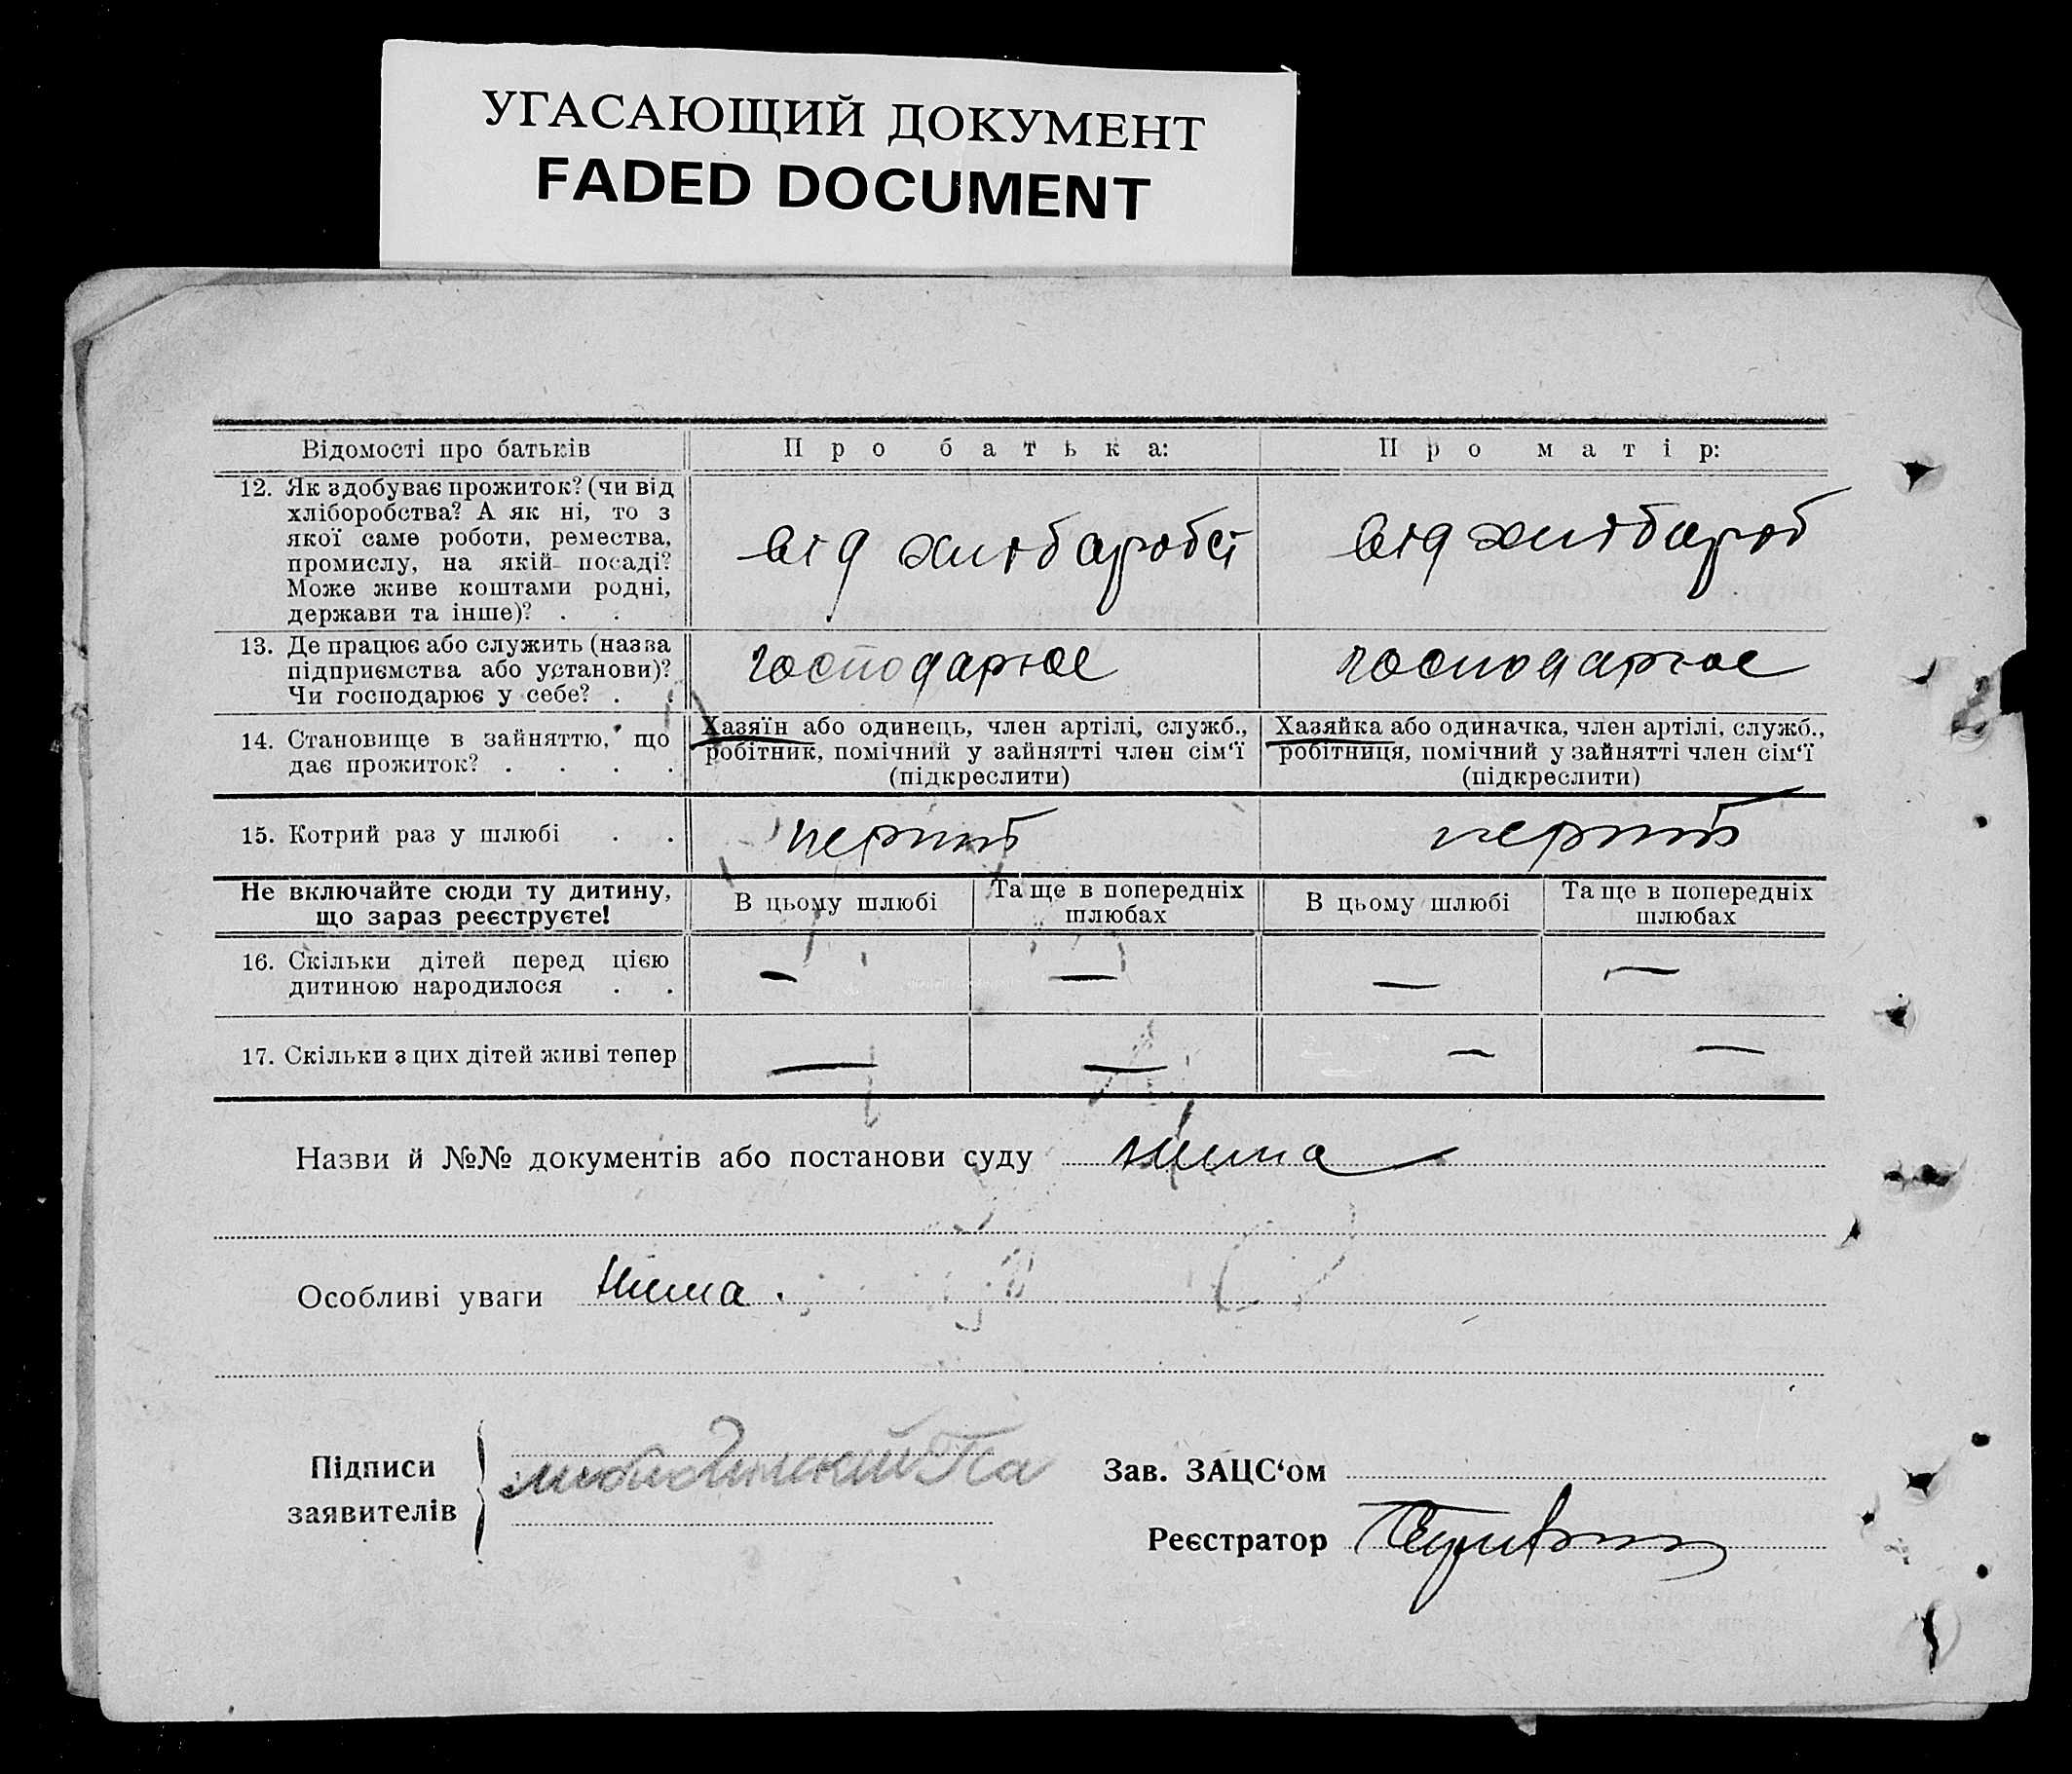 УГАСАЮЩИЙ ДОКУМЕНТ
FADED DOCUMENT
Відомості про батьків
Про батька:
Про матір:
12. Як здобуває прожиток? (чи від
хліборобства? А як ні, то з
якої саме роботи, ремества,
промислу, на якій посаді?
Може живе коштами родні,
держави та інше)? . .
від хлібаробст
від хлібароб
13. Де працює або служить (назва
підприємства або установи)?
Чи господарює у себе? .
господарює
господарює
14. Становище в зайняттю, що
дає прожиток? . . . .
Хазяїн або одинець, член артілі, служб.,
робітник, помічний у зайнятті член сім‘ї
(підкреслити)
Хазяйка або одиначка, член артілі, служб.,
робітниця, помічний у зайнятті член сім‘ї
(підкреслити)
15. Котрий раз у шлюбі . .
перший
перший
Не включайте сюди ту дитину,
що зараз реєструєте!
В цьому шлюбі
Та ще в попередніх
шлюбах
В цьому шлюбі
Та ще в попередніх
шлюбах
16. Скільки дітей перед цією
дитиною народилося . .
— — — —
17. Скільки з цих дітей живі тепер
— — — —
Назви й №№ документів або постанови суду
Нима
Особливі уваги Нима.
Підписи
заявителів
Зав. ЗАЦС‘ом
Реєстратор